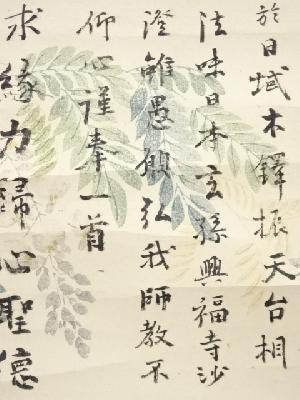 於日域木鐸振天台相
法味日本玄孫興福寺沙
澄雖愚願弘我師教不
仰心謹奉一首
求緣力歸心聖德